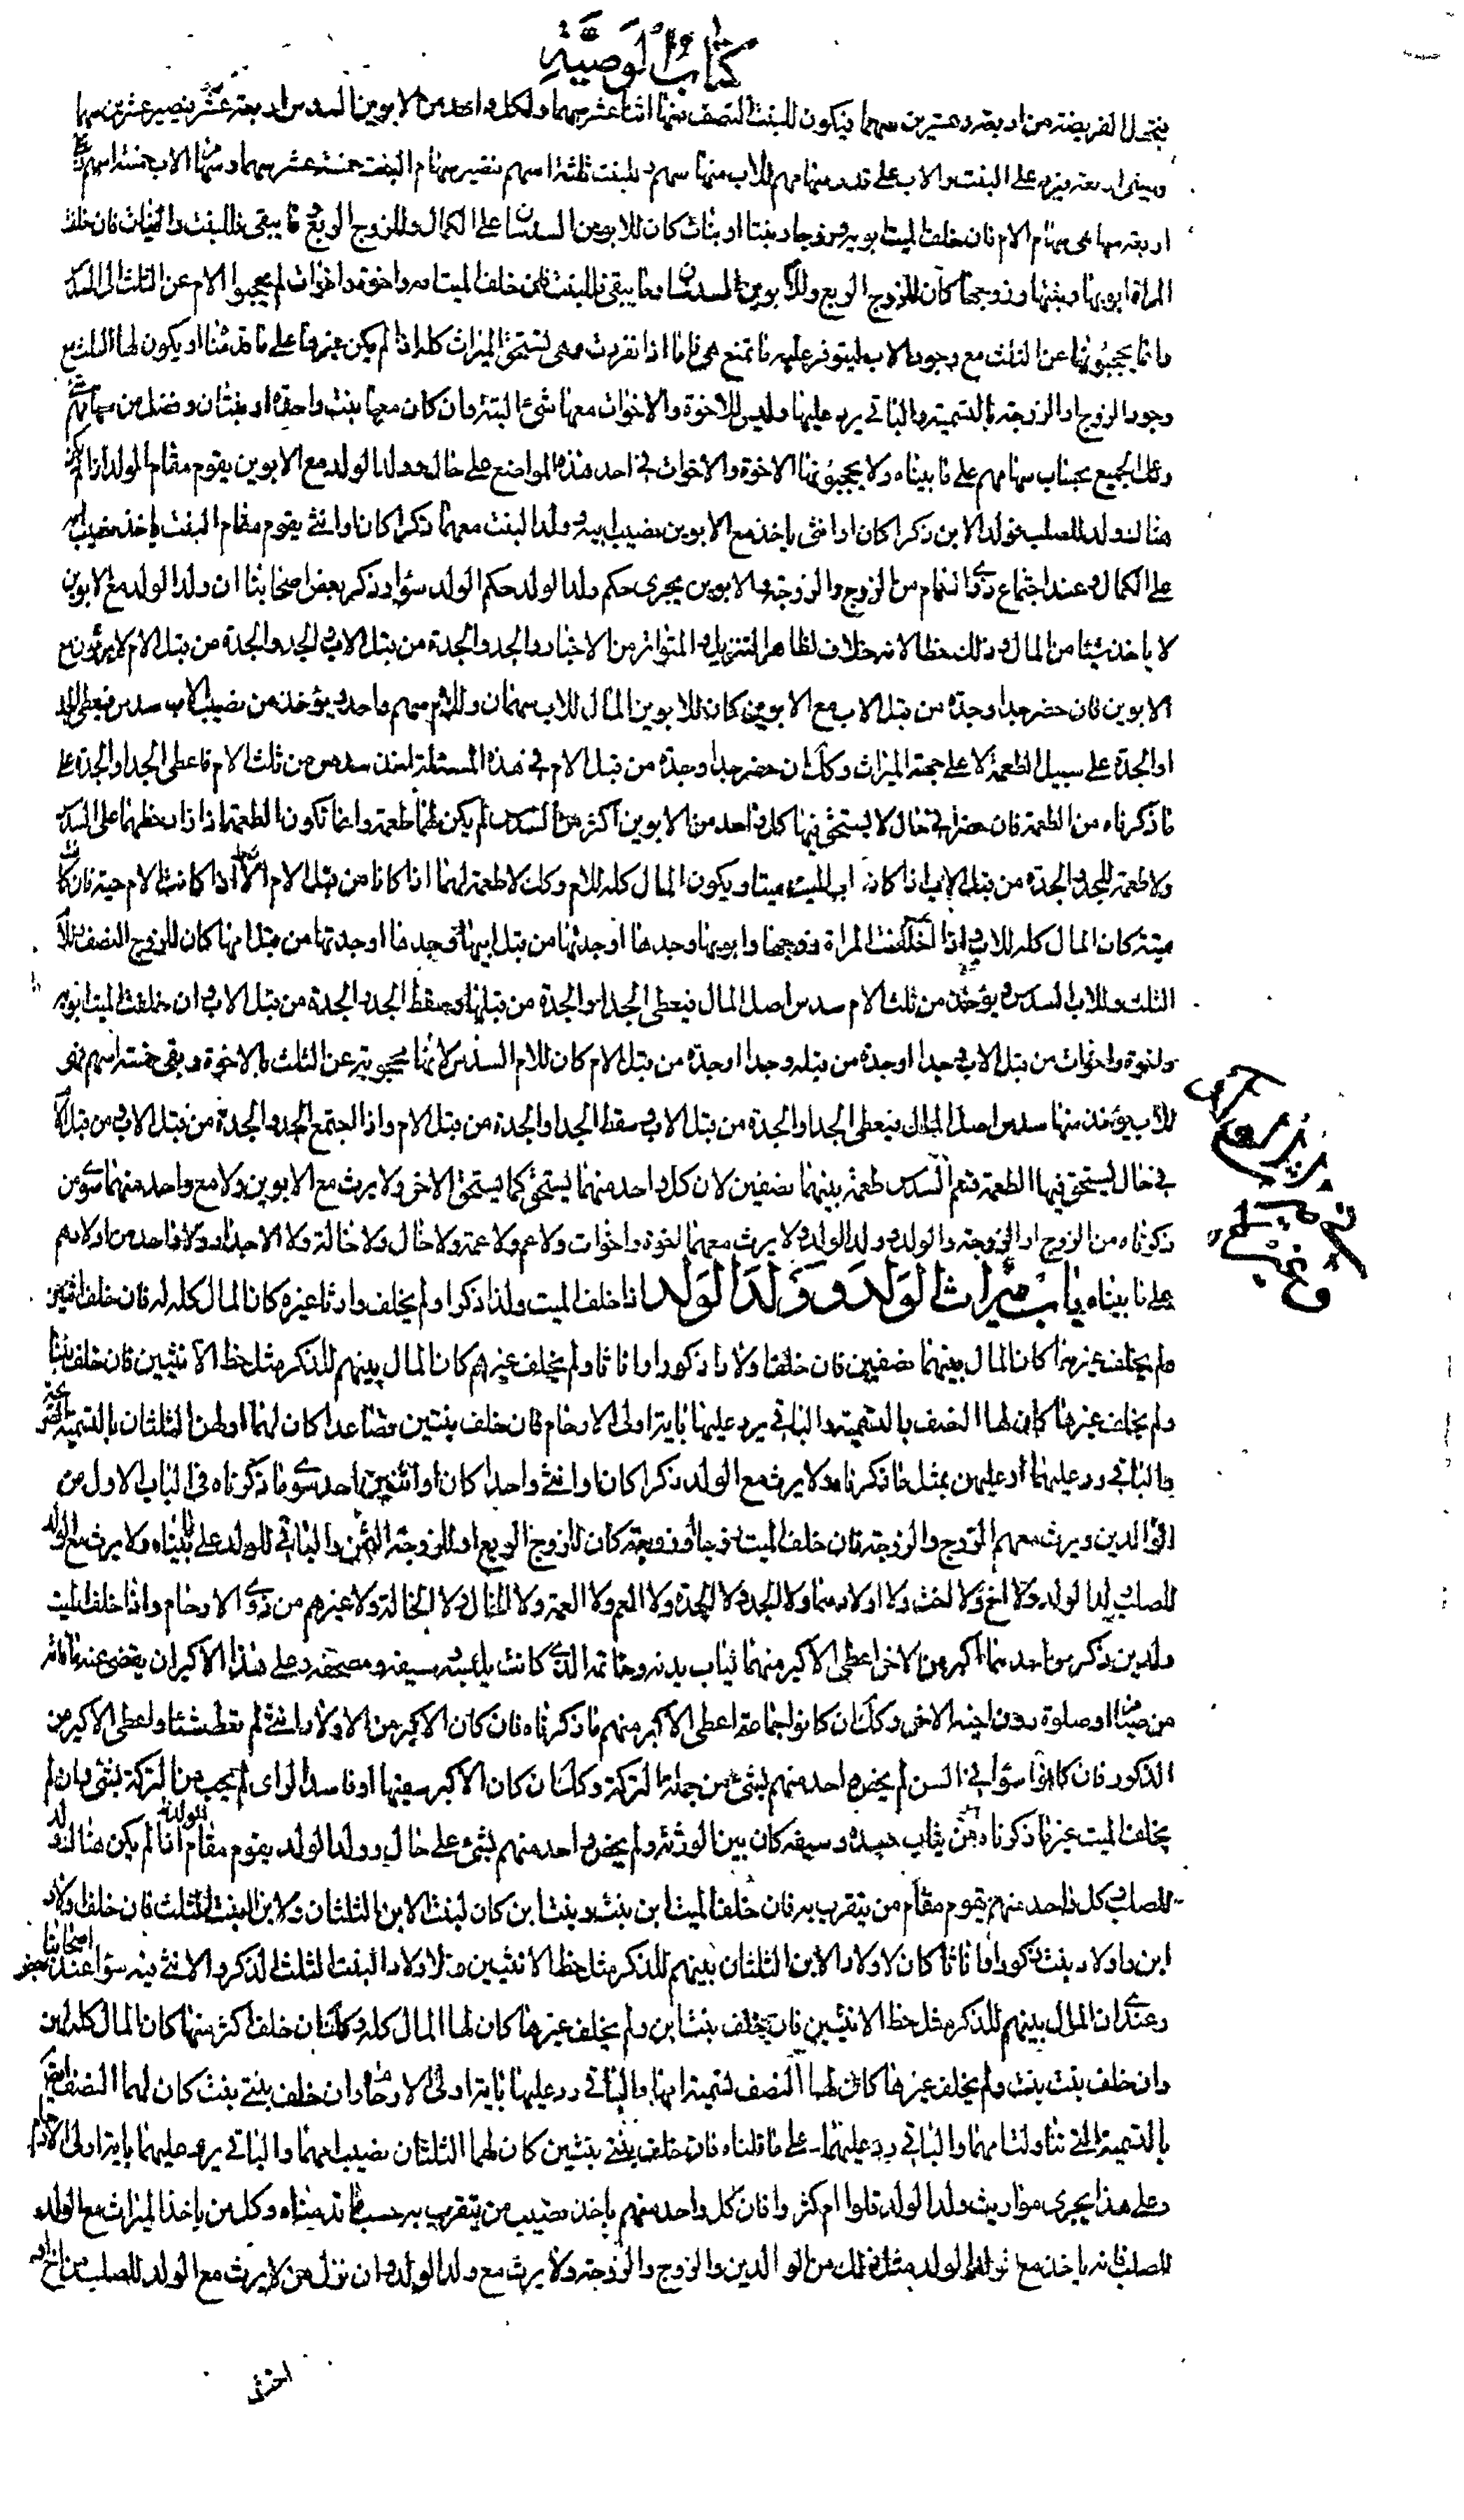 كتاب الوصية
فتحول الفريضة من اربعة وعشرين سهما فيكون للبنت النصف منها اثنا عشر سهما ولكل واحد من الابوين السدس اربعة فيصير عشرين سهما
ويبقى اربعة يرد على البنت والاب على قدر سهامهم للاب منها سهم وللبنت ثلثة اسهم فتصير سهام البنت خمسة عشر سهما وسهام الاب خمسة اسهم
اربعة سهام هى سهام الام فان خلف الميت ابويه وزوجا وبنتا او بنات كان للابوين السدسان على الكمال وللزوج الربع وما يبقى فللبنت والبنات فان خلفت
المراة ابويها وبنتها وزوجها كان للزوج الربع وللابوين السدسان وما يبقى فللبنت فان خلف الميت امه واخوة واخوات لم يحجبوا الام عن الثلث الى السدس
وانما يحجبونها عن الثلث مع وجود الاب ليتوفر عليه ما تمنع هى فاما اذا انفردت فهى تستحق الميراث كله اذا لم يكن غيرها على ما قدمنا او يكون لها الثلث مع
وجود الزوج او الزوجة بالتسمية والباقى يرد عليها وليس للاخوة والاخوات معها شئ البتة وان كان معها بنت واحدة او بنتان وفضل من سهامهم
رد على الجميع بحساب سهامهم على ما بيناه ولا يحجبونها الاخوة والاخوات فى احد هذه المواضع على حال وولد الولد مع الابوين يقوم مقام الولد اذا لم يكن
هنا لك ولد للصلب فولد الابن ذكرا كان او انثى ياخذ مع الابوين نصيب ابيه وولد البنت معهما ذكرا كان او انثى يقوم مقام البنت ياخذ نصيب امه
على الكمال وعند اجتماع ذوى السهام من الزوج والزوجة والابوين يجرى حكم ولد الولد حكم الولد سواء وذكر بعض اصحابنا ان ولد الولد مع الابوين
لا ياخذ شيئا من المال وذلك خطا لانه خلاف لظاهر التنزيل والمتواتر من الاخبار والجد والجدة من قبل الاب والجد والجدة من قبل الام لا يرثون مع
الابوين فان حضر جد او جدة من قبل الاب مع الابوين كان للابوين المال للاب سهمان وللام سهم واحد ويؤخذ من نصيب الاب سدس فيعطى الجد
او الجدة على سبيل الطعمة لا على جهة الميراث وكذلك ان حضر جد او جدة من قبل الام فى هذه المسئلة اخذ سدس من ثلث الام فاعطى الجد او الجدة على
ما ذكرناه من الطعمة فان حضرا فى حال لا يستحق فيها كل واحد من الابوين اكثر من السدس لم يكن لهما طعمة وانما تكون الطعمة اذا زاد حظهما على السدس
ولا طعمة للجد والجدة من قبل الاب اذا كان اب الميت ميتا ويكون المال كله للام وكذلك لا طعمة لهما اذا كانا من قبل الام الا اذا كانت الام حية فان كانت
ميتة كان المال كله للاب واذا خلفت المراة زوجها وابويها وجدها او جدتها من قبل ابيها وجدها او جدتها من قبل امها كان للزوج النصف وللام
الثلث وللاب السدس ويؤخذ من ثلث الام سدس اصل المال فيعطى الجد او الجدة من قبلها وسقط الجد والجدة من قبل الاب وان خلف الميت ابويه
واخوة واخوات من قبل الاب وجدا او جدة من قبله وجدا او جدة من قبل الام كان للام السدس لانها محجوبة عن الثلث بالاخوة وبقى خمسة اسهم فهو
للاب يؤخذ منها سدس اصل المال فيعطى الجد او الجدة من قبل الاب وسقط الجد او الجدة من قبل الام واذا اجتمع الجد والجدة من قبل الاب ومن قبل الام
فى حال يستحق فيها الطعمة قسم السدس طعمة بينهما نصفين لان كل واحد منهما يستحق كما يستحق الاخر ولا يرث مع الابوين ولا مع واحد منهما سوى من
ذكرناه من الزوج او الزوجة والولد وولد الولد ولا يرث معهما اخوة واخوات ولا عم ولا عمة ولا خال ولا خالة ولا الاجداد ولا واحد من اولادهم
على ما بيناه باب ميراث الولد وولد الولد اذا خلف الميت ولدا ذكرا ولم يخلف وارثا غيره كان المال كله له فان خلف اثنين
ولم يخلف غيرهما كان المال بينهما نصفين فان خلف اولادا ذكورا واناثا ولم يخلف غيرهم كان المال بينهم للذكر مثل حظ الانثيين فان خلف بنتا
ولم يخلف غيرها كان لها النصف بالتسمية والباقى يرد عليها باية اولى الارحام فان خلف بنتين فصاعدا كان لهما او لهن الثلثان بالتسمية
والباقى رد عليهما او عليهن بمثل ما ذكرناه ولا يرث مع الولد ذكرا كان او انثى واحدا كان او اثنين احد سوى ما ذكرناه فى الباب الاول من
الوالدين ويرث معهم الزوج والزوجة فان خلف الميت زوجا او زوجة كان للزوج الربع او للزوجة الثمن والباقى للولد على ما بيناه ولا يرث مع الولد
للصلب ولد الولد ولا اخ ولا اخت ولا اولادهما ولا الجد ولا الجدة ولا العم ولا العمة ولا الخال ولا الخالة ولا غيرهم من ذوى الارحام واذا خلف الميت
ولدين ذكرين احدهما اكبر من الاخر اعطى الاكبر منهما ثياب بدنه وخاتمه الذى كانت يلبسه وسيفه ومصحفه وعلى هذا الاكبر ان يقضى عنه ما فاته
من صيام او صلوة دون اخيه الاخر وكذلك ان كانوا جماعة اعطى الاكبر منهم ما ذكرناه فان كان الاكبر من الاولاد انثى لم تعط شيئا واعطى الاكبر من
الذكور فان كانوا سواء فى السن لم يخص احد منهم بشئ من جملة التركة وكذلك ان كان الاكبر سفيها او فاسد الراى لم يحب من التركة بشئ وان لم
يخلف الميت غير ما ذكرناه من ثياب جسده وسيفه كان بين الورثة ولم يخص احد منهم بشئ على حال وولد الولد يقوم مقام الولد اذا لم يكن هنا لك ولد
للصلب وكل واحد منهم يقوم مقام من يتقرب به فان خلف الميت ابن بنت وبنت ابن كان لبنت الابن الثلثان ولابن البنت الثلث فان خلف اولاد
ابن واولاد بنت ذكورا واناثا كان لاولاد الابن الثلثان بينهم للذكر مثل حظ الانثيين ولاولاد البنت الثلث الذكر والانثى فيه سواء عند بعض اصحابنا
وعندى ان المال بينهم للذكر مثل حظ الانثيين فان خلف بنت ابن ولم يخلف غيرها كان لها المال كله وكذلك ان خلف اكثر منها كان المال كله لهن
وان خلف بنت بنت ولم يخلف غيرها كان لها النصف تسمية امها والباقى رد عليها باية اولى الارحام وان خلف بنتى بنت كان لهما النصف ايضا
بالتسمية التى تناولت امهما والباقى رد عليهما على ما قلناه فان خلف بنتى بنتين كان لهما الثلثان نصيب امهما والباقى يرد عليهما باية اولى الارحام
وعلى هذا يجرى مواريث ولد الولد قلوا ام كثروا فان كل واحد منهم ياخذ نصيب من يتقرب به حسب ما قدمناه وكل من ياخذ الميراث مع الولد
للصلب فانه ياخذ مع ولد الولد مثل ذلك من الوالدين والزوج والزوجة ولا يرث مع ولد الولد وان نزل من لا يرث مع الولد للصلب من اخ